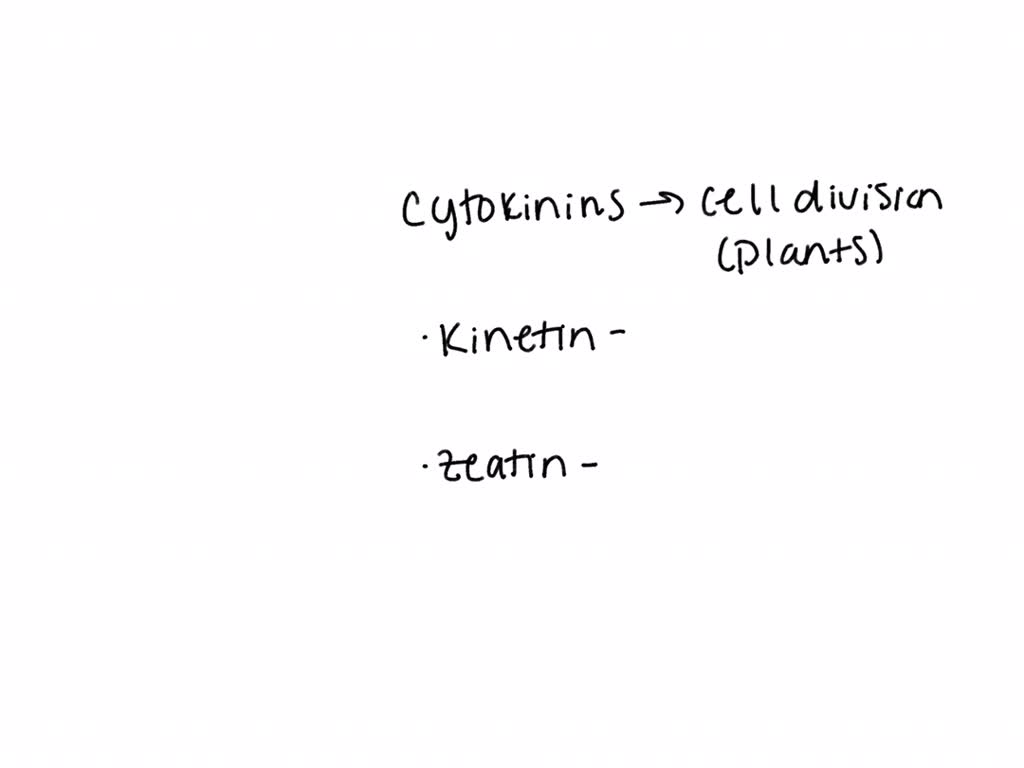 Cytokinins → cell division
(plants)
· Kinetin -
· Zeatin -